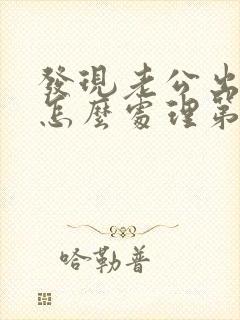 發現老公出
怎麼處理第
哈勒普